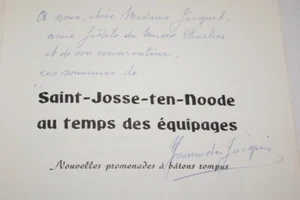 A vous, chère Madame Jacquet,
amie fidèle du Musée Charlier
et de son conservateur,
ces souvenirs de
Saint-Josse-ten-Noode
au temps des équipages
Nouvelles promenades à bâtons rompus